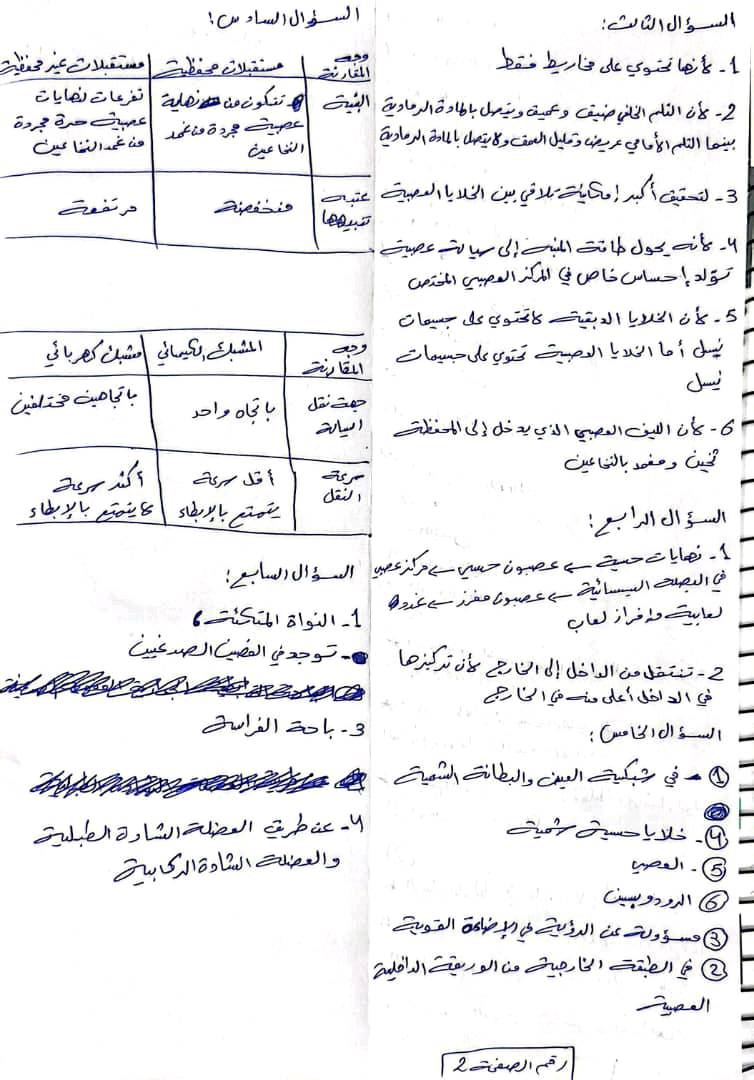 السؤال الثالث:
1- لأنها تحتوي على مخاريط فقط
2- لأن الثلم الخلفي ضيق وعميق ويتصل بالمادة الرمادية
بينما الثلم الأمامي عريض وقليل العمق ولا يتصل بالمادة الرمادية
3- لتحقيق أكبر إمكانية تلاقي بين الخلايا العصبية
4- لأنه يحول طاقة المنبه إلى سيالة عصبية
تولد إحساس خاص في المركز العصبي المختص
5- لأن الخلايا الدبقية لا تحتوي على جسيمات
نيسل أما الخلايا العصبية تحتوي على جسيمات
نيسل
6- لأن الليف العصبي الذي يدخل إلى المحفظة
ثخين ومغمد بالنخاعين
السؤال الرابع:
1- نهايات حسية ← عصبون حسي ← مركز عصبي
في البصلة السيسائية ← عصبون مفرز ← غدد
لعابية افراز لعاب
2- تنتقل من الداخل إلى الخارج لأن تركيزها
في الداخل أعلى منه في الخارج
السؤال الخامس:
1- في شبكية العين والبطانة الشمية
4- خلايا حسية شمية
5- العصبي
6 الرودوبسين
3 مسؤولة عن الرؤية في الإضاءة القوية
2 في الطبقة الخارجية من الوريقة الداخلية
العصبية
السؤال السادس:
وجه المقارنة | مستقبلات محفظية | مستقبلات غير محفظية
البنية | تتكون من نهاية عصبية مجردة من غمد النخاعين | تفرعات لنهايات عصبية حرة مجردة من غمد النخاعين
عتبة تنبيهها | منخفضة | مرتفعة
وجه المقارنة | المشبك الكيميائي | مشبك كهربائي
جهة نقل السيالة | باتجاه واحد | باتجاهين مختلفين
سرعة النقل | أقل سرعة يتمتع بالإبطاء | أكثر سرعة لا يتمتع بالإبطاء
السؤال السابع:
1- النواة المتكئة،
توجد في الفصين الصدغيين
3- باحة الفراسة
4- عن طريق العضلة الشادة الطبلية
والعضلة الشادة الركابية
رقم الصفحة 2